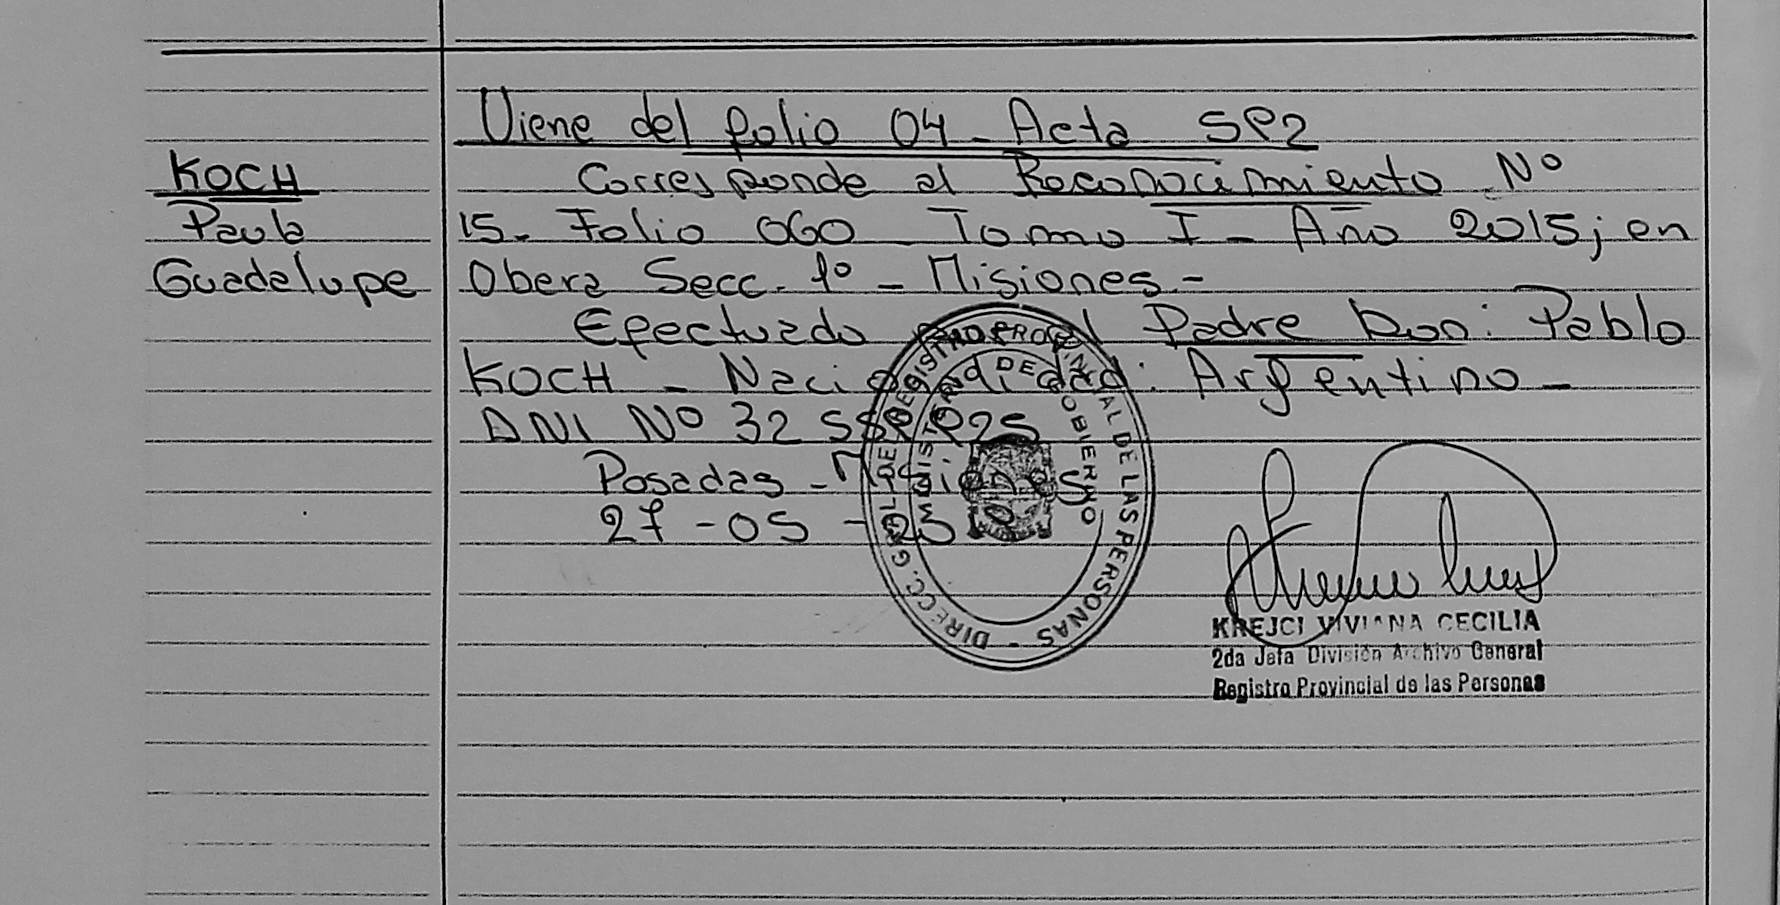 Viene del folio 04 - Acta 582
KOCH
Paula
Guadalupe
Corresponde al Reconocimiento Nº
15. Folio 060 Tomo I - Año 2015; en
Obera Secc. 1º - Misiones.-
Efectuado el Padre Don: Pablo
KOCH - Nacionalidad: Argentino -
DNI Nº 32
Posadas - Misiones
27 - 05 -
DIRECC. GRAL. DE REGISTRO PROVINCIAL DE LAS PERSONAS -
MINISTERIO DE GOBIERNO
KREJCI VIVIANA CECILIA
2da Jefa División Archivo General
Registro Provincial de las Personas